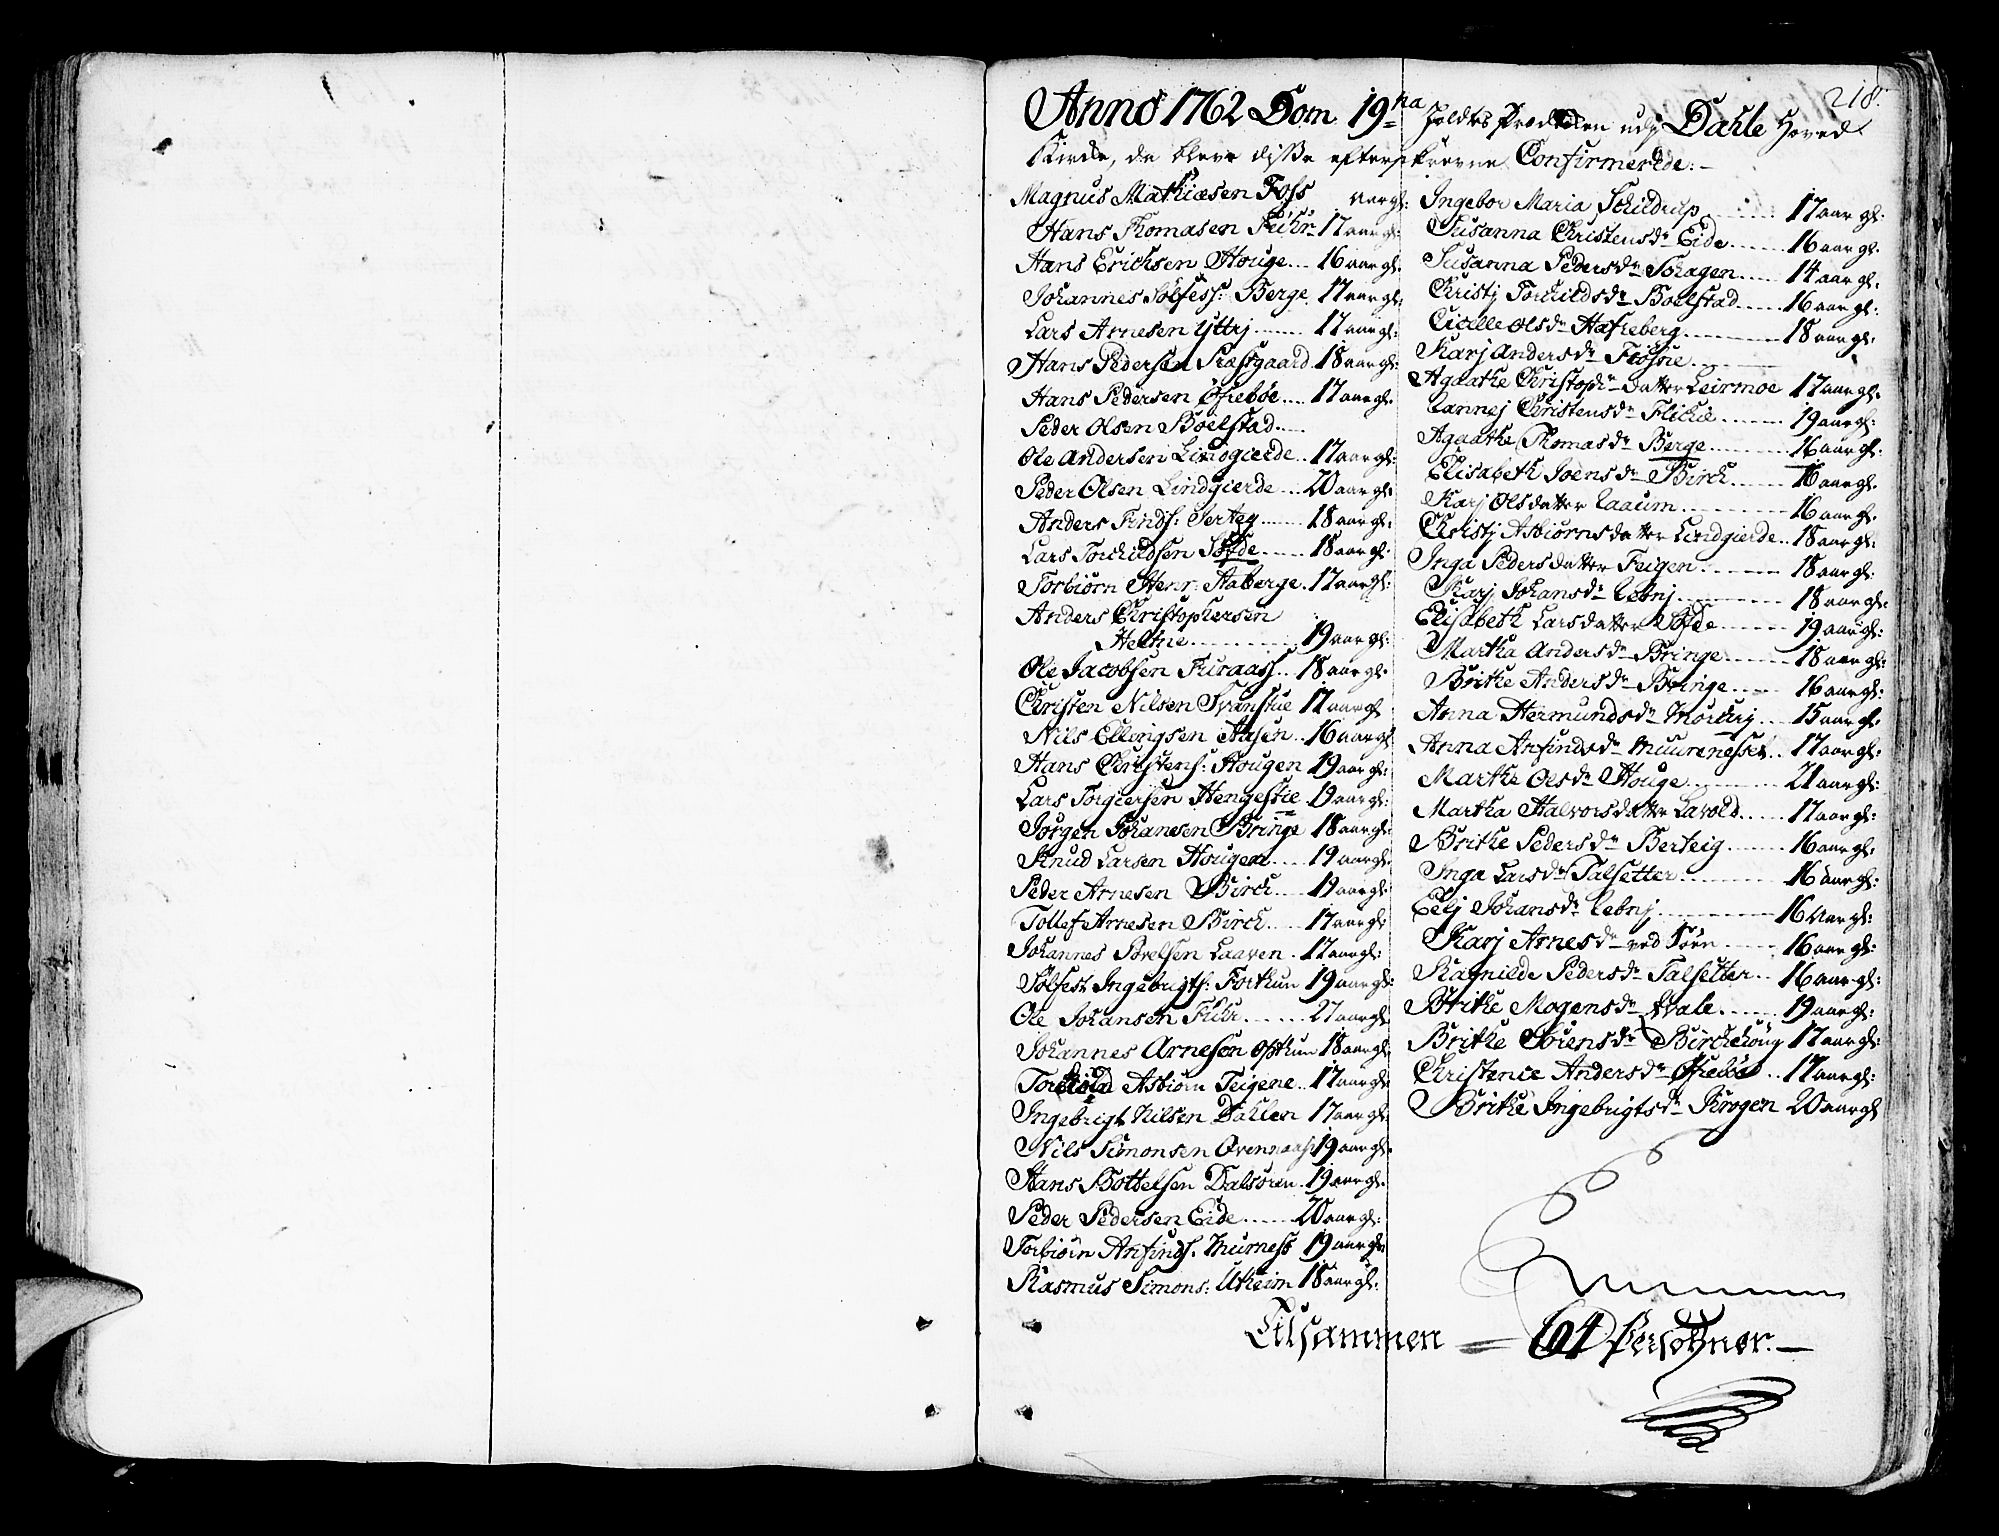 218.
Anno 1762 Dom 19na holdtes Prædiken udj Dahle Hoved
Kirke, da bleve disse efterskrevne Confirmerede:-
Magnus Mathiesen Foss aar gl:
Hans Thomasen Fuhr 17 aar gl:
Hans Erichsen Houge 16 aar gl:
Johannes Sølfess: Berge 17 aar gl:
Lars Arnesen Yttrj 17 aar gl:
Hans Pedersen Præstgaard 18 aar gl:
Hans Pedersen Øfrebøe 17 aar gl:
Peder Olsen Boelstad
Ole Andersen Lindgierde 17 aar gl:
Peder Olsen Lindgierde 20 aar gl:
Anders Finds: 18 aar gl:
Lars Torchildsen 18 aar gl:
Torbiørn Henr: Aaberge 17 aar gl:
Anders Christophersen
Heltne 19 aar gl:
Ole Jacobsen Furaass 18 aar gl:
Christen Nilsen Svanstue 17 aar gl
Nils Ellingsen Aasen 16 aar gl
Hans Christens: Hougen 19 aar gl:
Lars Torgiersen 19 aar gl:
Jørgen Johanesen Bringe 18 aar gl:
Knud Larsen Hougen 19 aar gl:
Peder Arnesen Birch 19 aar gl:
Tollef Arnesen Birch 17 aar gl:
Johannes Laaven 17 aar gl:
Sølfest Ingebrigts: Forthun 19 aar gl:
Ole Johansen Fuhr 21 aar gl
Johannes Arnesen Opthun 18 aar gl:
Asbiørn Teigene 17 aar gl:
Ingebrigt Nilsen Dahlen 17 aar gl:
Nils Simonsen 19 aar gl:
Hans Bottelsen Dalsøren 19 aar gl:
Peder Pedersen Eide 20 aar gl:
Torbiørn Arfinds: Murness 19 aar gl:
Rasmus Simons: Utheim 18 aar gl:
Ingebor Maria Schildrup 17 aar gl:
Susanna Christensdr Eide 16 aar gl:
Susanna Pedersdr 14 aar gl:
Christj Torchildsdr Boelstad 16 aar gl:
Cicelle Olsdr Hafreberg 18 aar gl:
Karj Andersdr
Agaathe Christophr datter Leirmoe 17 aar gl:
Lannej Christensdr 19 aar gl:
Agaathe Thomasdr Berge 16 aar gl:
Elisabeth Joensdr Birch 16 aar gl:
Karj Olsdatter 16 aar gl:
Christj Asbiørnsdatter Lindgierde 18 aar gl:
Inga Pedersdatter Feigen 18 aar gl:
Karj Johansdr 18 aar gl:
Elisabeth Larsdatter 19 aar gl:
Martha Andersdr Bringe 18 aar gl:
Brithe Andersdr Bringe 16 aar gl:
Anna Hermundsdr 15 aar gl:
Anna Arfindsdr 17 aar gl:
Marthe Olsdr Houge 21 aar gl:
Martha Halvorsdatter Lavold 17 aar gl:
Brithe Pedersdr Berteig 16 aar gl:
Inga Larsdr Talsetter 16 aar gl:
Eelj Johansdr 16 aar gl:
Karj Arnesdr ved Søen 16 aar gl:
Ragnilde Pedersdr Talsetter 16 aar gl:
Brithe Mogensdr Qvale 19 aar gl:
Brithe Sørensdr Birchehoug 17 aar gl:
Christence Andersdr Øfrebøe 17 aar gl:
Brithe Ingebrigtsdr Krogen 20 aar gl
Tilsammen = 64 Persohner.-